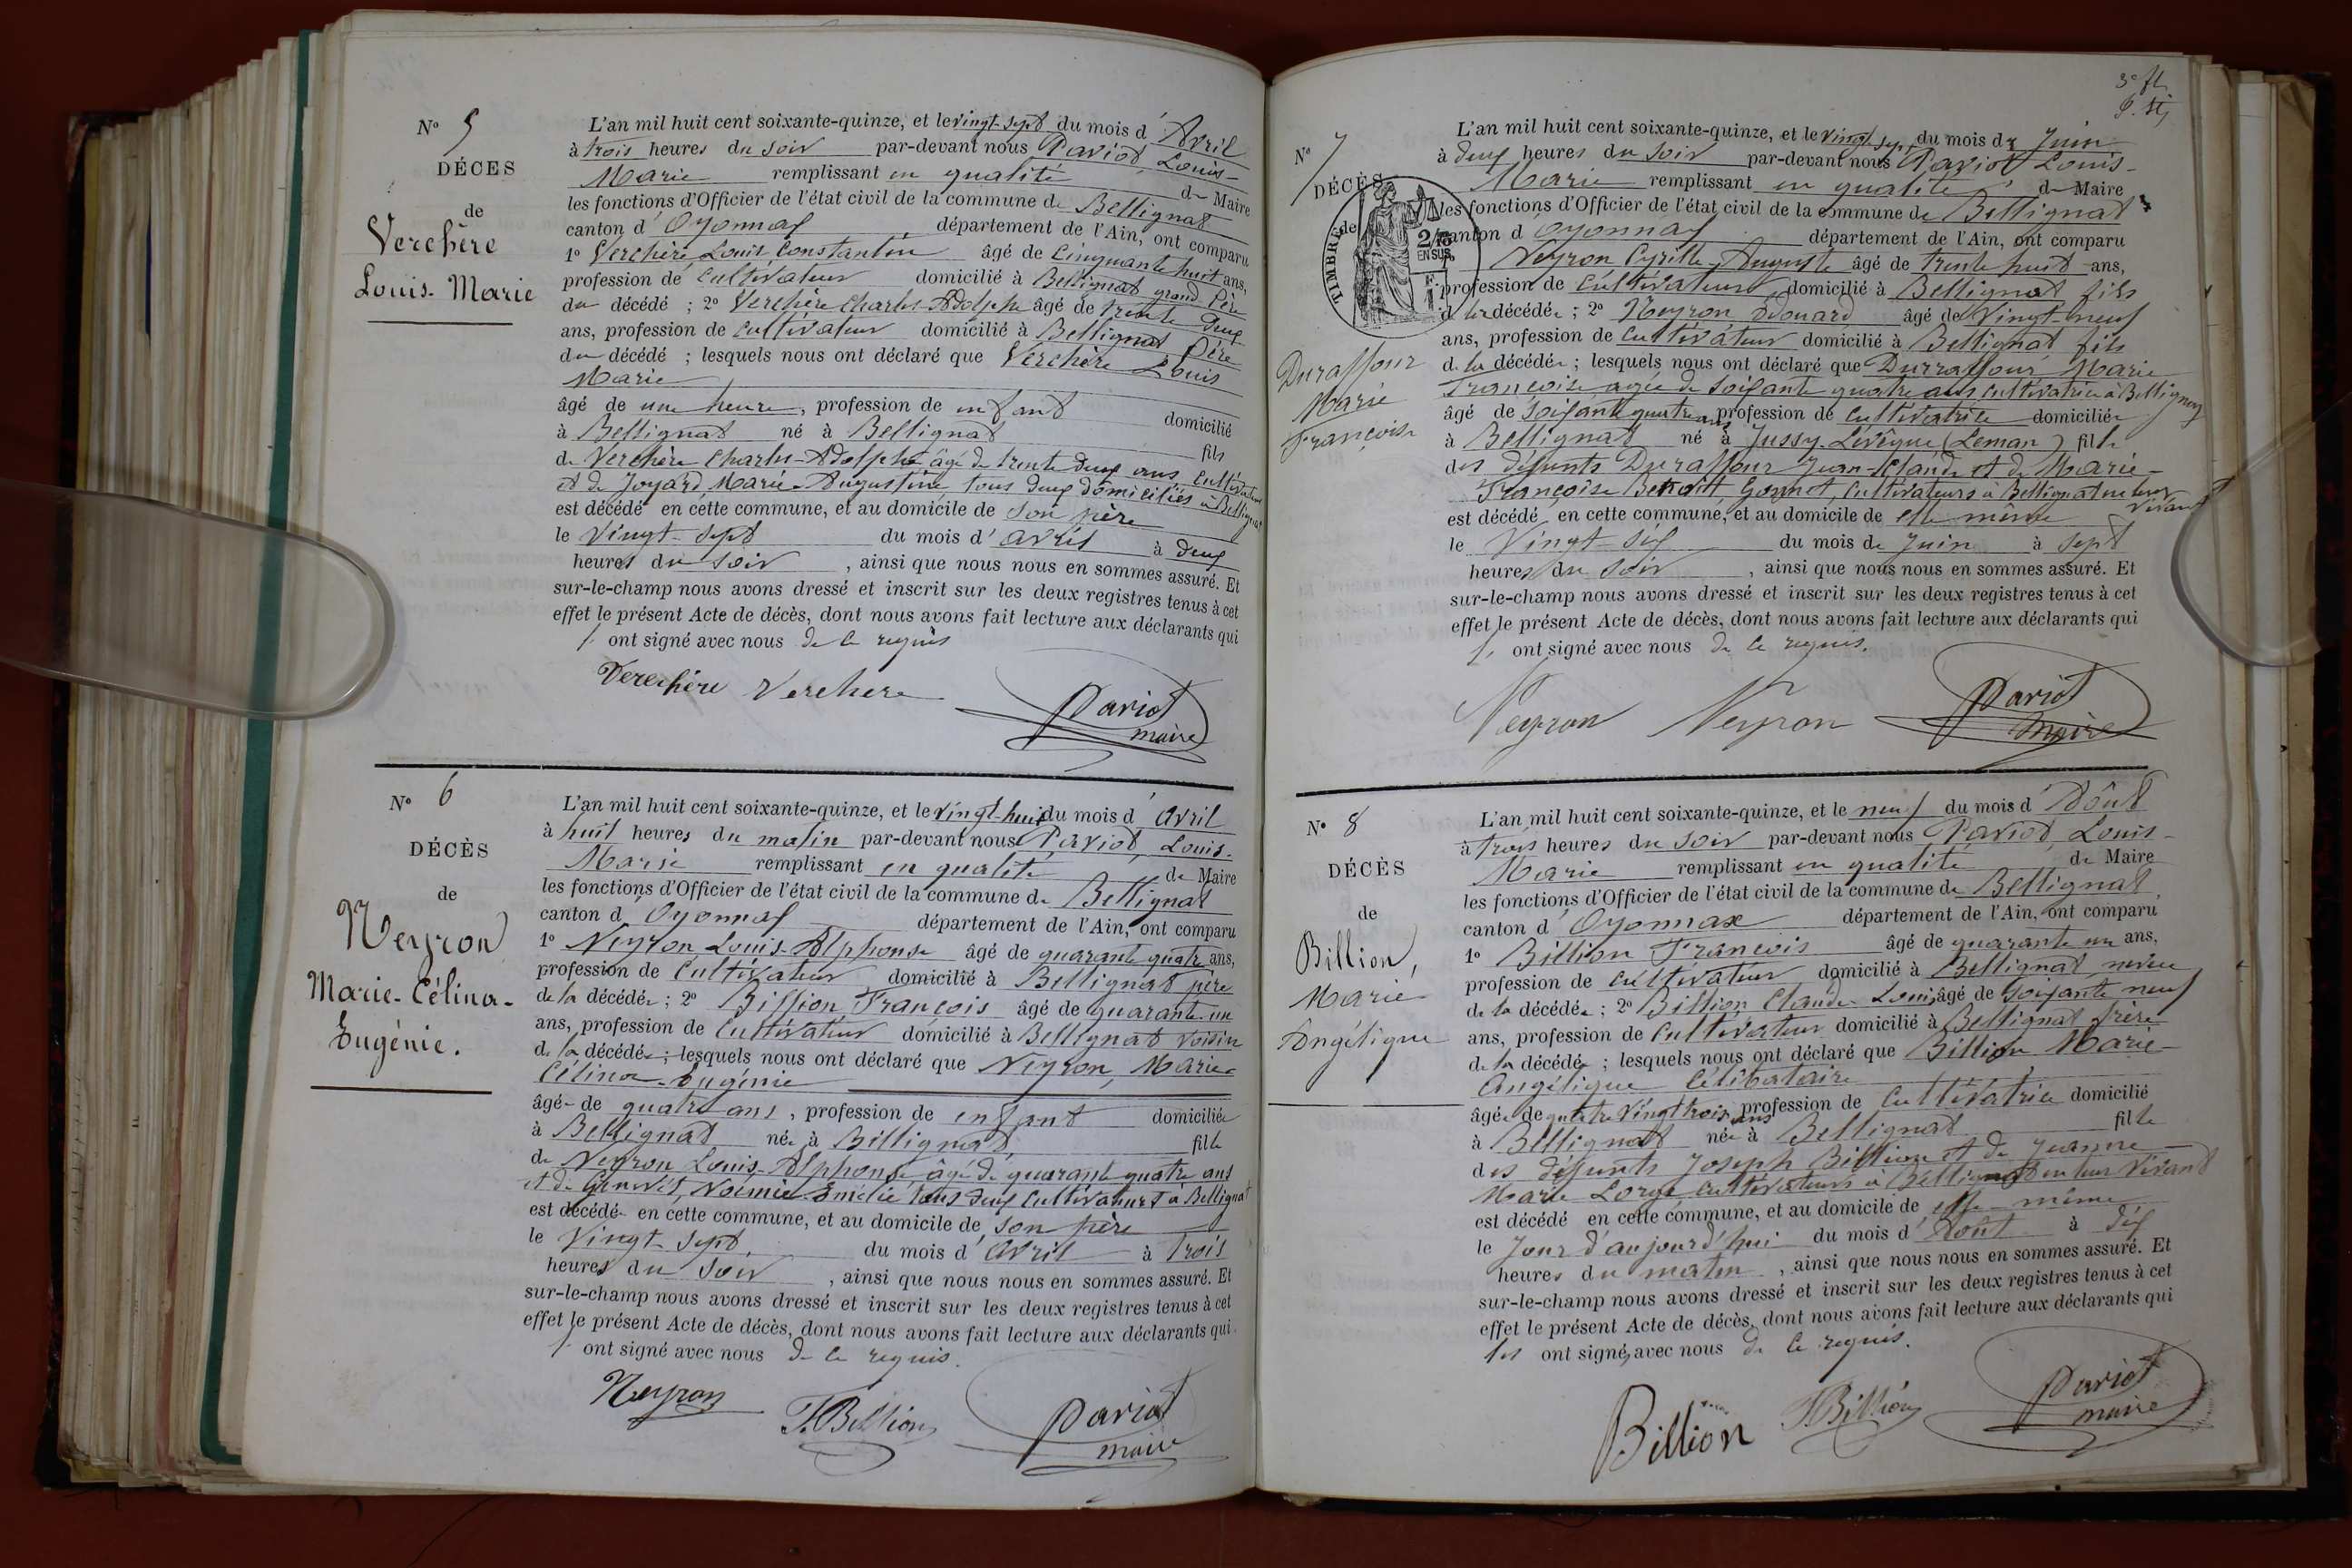 N° 5
DÉCES
de
Verchère
Louis-Marie
L'an mil huit cent soixante-quinze, et le vingt-sept du mois d'Avril
à trois heures du soir par-devant nous Pariod, Louis-
Marie remplissant en qualité de Maire
les fonctions d'Officier de l'état civil de la commune de Bellignat
canton d'Oyonnax département de l'Ain, ont comparu
1° Verchère Louis Constantin âgé de Cinquante huit ans,
profession de Cultivateur domicilié à Bellignat grand Père
du décédé ; 2° Verchère Charles-Adolphe âgé de trente deux
ans, profession de Cultivateur domicilié à Bellignat Père
du décédé ; lesquels nous ont déclaré que Verchère Louis
Marie
âgé de une heure, profession de enfant domicilié
à Bellignat né à Bellignat fils
de Verchère Charles-Adolphe âgé de trente deux ans, Cultivateur
et de Joyard Marie-Augustine tous deux domiciliés à Bellignat
est décédé en cette commune, et au domicile de son père
le Vingt-sept du mois d'avril à deux
heures du soir, ainsi que nous nous en sommes assuré. Et
sur-le-champ nous avons dressé et inscrit sur les deux registres tenus à cet
effet le présent Acte de décès, dont nous avons fait lecture aux déclarants qui
ont signé avec nous de ce requis
Verchère Verchere Pariot
maire
N° 6
DÉCÈS
de
Neyron
Marie-Célina-
Eugénie.
L'an mil huit cent soixante-quinze, et le vingt-huit du mois d'avril
à huit heures du matin par-devant nous Pariod, Louis-
Marie remplissant en qualité de Maire
les fonctions d'Officier de l'état civil de la commune de Bellignat
canton d'Oyonnax département de l'Ain, ont comparu
1° Neyron Louis-Alphonse âgé de quarante quatre ans,
profession de Cultivateur domicilié à Bellignat père
de la décédée ; 2° Billion François âgé de quarante-un
ans, profession de Cultivateur domicilié à Bellignat voisin
de la décédée ; lesquels nous ont déclaré que Neyron, Marie-
Célina-Eugénie
âgée de quatre ans, profession de enfant domiciliée
à Bellignat née à Billignat fille
de Neyron Louis-Alphonse âgé de quarante quatre ans
et de Noémie Emélie tous deux Cultivateurs à Bellignat
est décédée en cette commune, et au domicile de son père
le Vingt-sept du mois d'Avril à trois
heures du soir, ainsi que nous nous en sommes assuré. Et
sur-le-champ nous avons dressé et inscrit sur les deux registres tenus à cet
effet le présent Acte de décès, dont nous avons fait lecture aux déclarants qui
ont signé avec nous de ce requis.
Neyron F. Billion Pariot
maire
3e f
N° 7
DÉCÈS
de
TIMBRE
2/10
EN SUS
Duraffour
Marie
Françoise
L'an mil huit cent soixante-quinze, et le vingt-sept du mois de Juin
à deux heures du soir par-devant nous Pariot Louis-
Marie remplissant en qualité de Maire
les fonctions d'Officier de l'état civil de la commune de Bellignat
canton d'Oyonnax département de l'Ain, ont comparu
Neyron Cyrille-Auguste âgé de trente huit ans,
profession de Cultivateur domicilié à Bellignat fils
de la décédée ; 2° Neyron Edouard âgé de Vingt-neuf
ans, profession de Cultivateur domicilié à Bellignat fils
de la décédée ; lesquels nous ont déclaré que Durraffour Marie
Françoise agée de soixante quatre ans cultivatrice à Bellignat
âgé de soixante quatre ans profession de cultivatrice domiciliée
à Bellignat né à Jussy Lévêque (Leman) fille
des défunts Duraffour Jean-Claude et de Marie-
Françoise Benoitt Gonnet, Cultivateurs à Bellignat en leur vivant
est décédé en cette commune, et au domicile de elle même
le Vingt-six du mois de Juin à sept
heures du soir, ainsi que nous nous en sommes assuré. Et
sur-le-champ nous avons dressé et inscrit sur les deux registres tenus à cet
effet le présent Acte de décès, dont nous avons fait lecture aux déclarants qui
ont signé avec nous de ce requis.
Neyron Neyron Pariot
Maire
N° 8
DÉCÈS
de
Billion,
Marie
Angélique
L'an mil huit cent soixante-quinze, et le neuf du mois d'Aôut
à trois heures du soir par-devant nous Pariod, Louis-
Marie remplissant en qualité de Maire
les fonctions d'Officier de l'état civil de la commune de Bellignat
canton d'Oyonnax département de l'Ain, ont comparu
1° Billion François âgé de quarante un ans,
profession de cultivateur domicilié à Bellignat neveu
de la décédée ; 2° Billion Claude-Louis âgé de soixante neuf
ans, profession de Cultivateur domicilié à Bellignat frère
de la décédée ; lesquels nous ont déclaré que Billion Marie-
Angélique Célibataire
âgée de quatre Vingt trois ans profession de Cultivatrice domicilié
à Bellignat née à Bellignat fille
des défunts Joseph Billion et de Jeanne
Marie Lorge cultivateurs à Bellignat en leur Vivant
est décédé en cette commune, et au domicile de elle-même
le Jour d'aujourd'hui du mois d'Août à dix
heures du matin, ainsi que nous nous en sommes assuré. Et
sur-le-champ nous avons dressé et inscrit sur les deux registres tenus à cet
effet le présent Acte de décès, dont nous avons fait lecture aux déclarants qui
les ont signé, avec nous de ce requis.
Billion F. Billion Pariot
maire